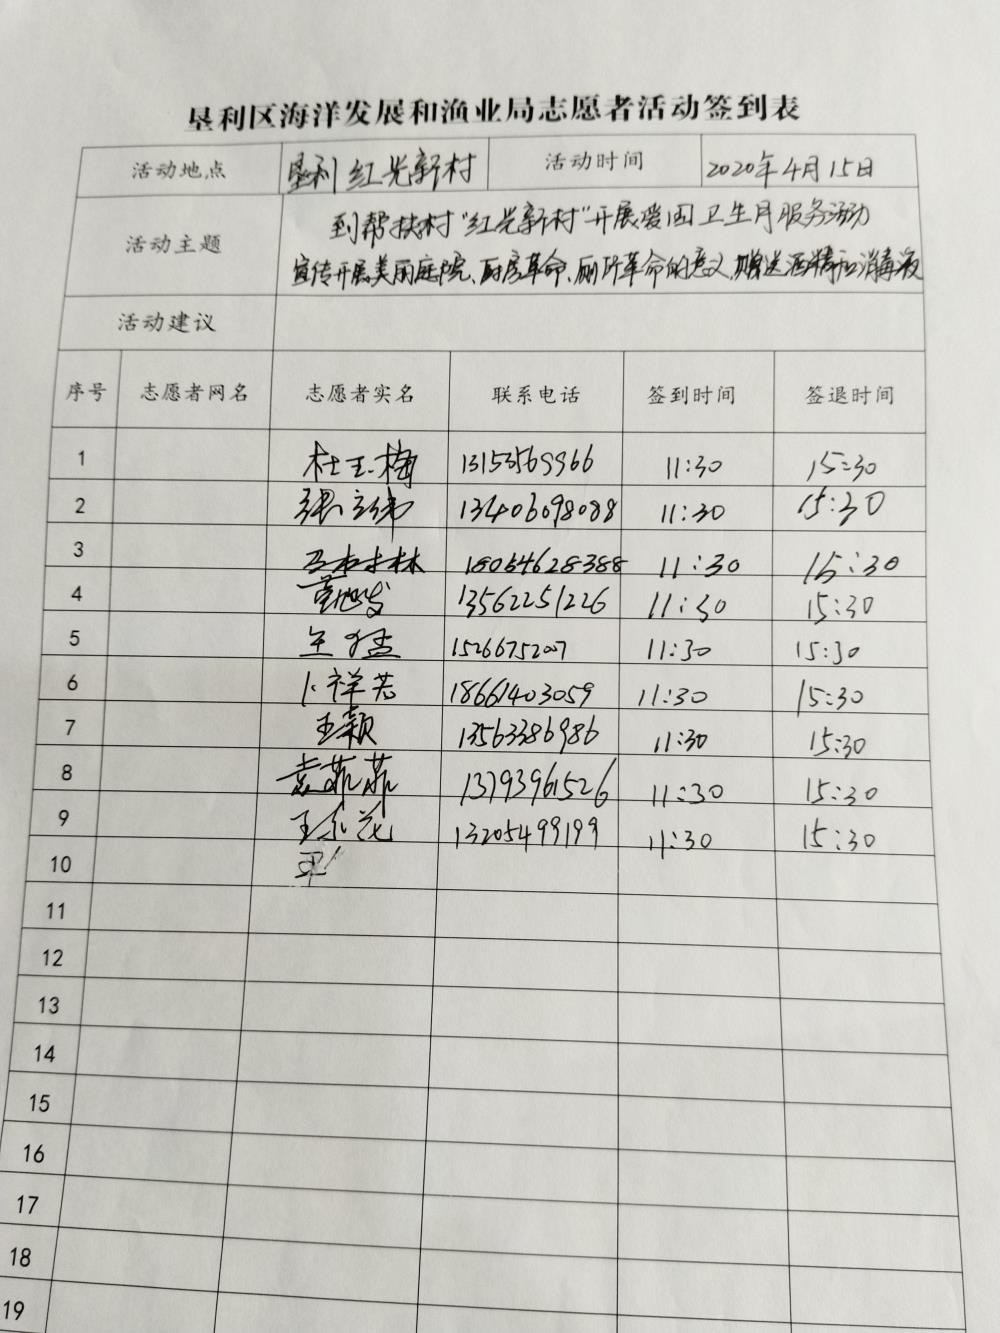 垦利区海洋发展和渔业局志愿者活动签到表
活动地点 垦利红光新村 活动时间 2020年4月15日
活动主题 到帮扶村"红光新村"开展爱国卫生月服务活动
宣传开展美丽庭院、厨房革命、厕所革命的意义,赠送酒精和消毒液
活动建议
序号 志愿者网名 志愿者实名 联系电话 签到时间 签退时间
1 杜玉梅 13153569966 11:30 15:30
2 13406098088 11:30 15:30
3 18054628388 11:30 15:30
4 13562251226 11:30 15:30
5 王猛 15266752007 11:30 15:30
6 卜祥芸 18661403059 11:30 15:30
7 王颖 13563386986 11:30 15:30
8 袁菲菲 13793961526 11:30 15:30
9 13205499199 11:30 15:30
10
11
12
13
14
15
16
17
18
19